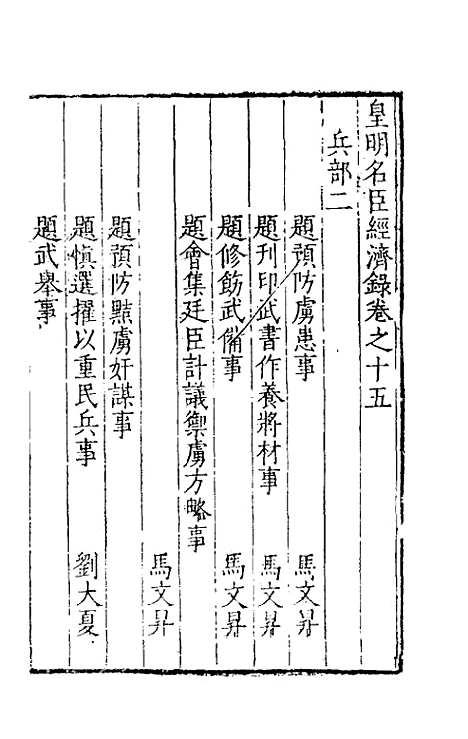 皇明名臣經濟錄卷之十五
兵部二
題預防虜患事 馬文昇
題刊印武書作養將材事 馬文昇
題修飭武備事 馬文昇
題會集廷臣計議禦虜方略事
馬文昇
題預防黠虜奸謀事
題慎選擢以重民兵事 劉大夏
題武舉事